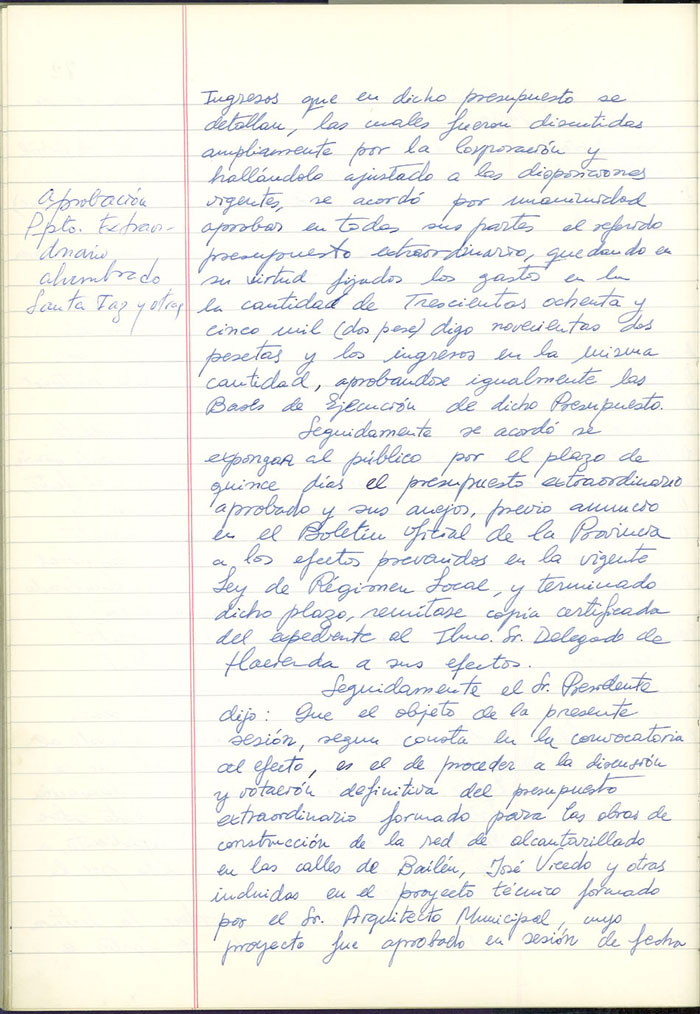 Ingresos que en dicho presupuesto se
detallan, las cuales fueron discutidas
ampliamente por la Corporación y
hallándolo ajustado a las disposiciones
vigentes, se acordó por unanimidad
aprobar en todas sus partes el referido
presupuesto extraordinario, quedando en
su virtud fijados los gastos en la
la cantidad de Trescientas ochenta y
cinco mil (dos pese) digo novecientas dos
pesetas y los ingresos en la misma
cantidad, aprobandose igualmente las
Bases de Ejecución de dicho Presupuesto.
Seguidamente se acordó se
expongan al público por el plazo de
quince días el presupuesto extraordinario
aprobado y sus anejos, previo anuncio
en el Boletín oficial de la Provincia
a los efectos prevenidos en la vigente
Ley de Régimen Local, y terminado
dicho plazo, remitase copia certificada
del expediente al Ilmo. Sr. Delegado de
Hacienda a sus efectos.
Seguidamente el Sr. Presidente
dijo: Que el objeto de la presente
sesión, segun consta en la convocatoria
al efecto, es el de proceder a la discusión
y votación definitiva del presupuesto
extraordinario formado para las obras de
construcción de la red de alcantarillado
en las calles de Bailén, José Vicedo y otras
incluidas en el proyecto técnico formado
por el Sr. Arquitecto Municipal, cuyo
proyecto fue aprobado en sesión de fecha
Aprobación
Ppto. Extraor-
dinario
alumbrado
Santa Faz y otras